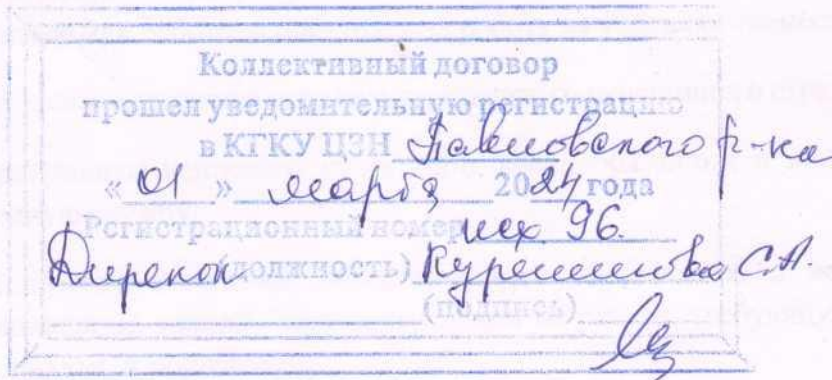 Коллективный договор
прошел уведомительную регистрацию
в КГКУ ЦЗН Павловского р-на
« 01 » марта 2024 года
Регистрационный номер исх 96.
Директор (должность) С.А.
(подпись)